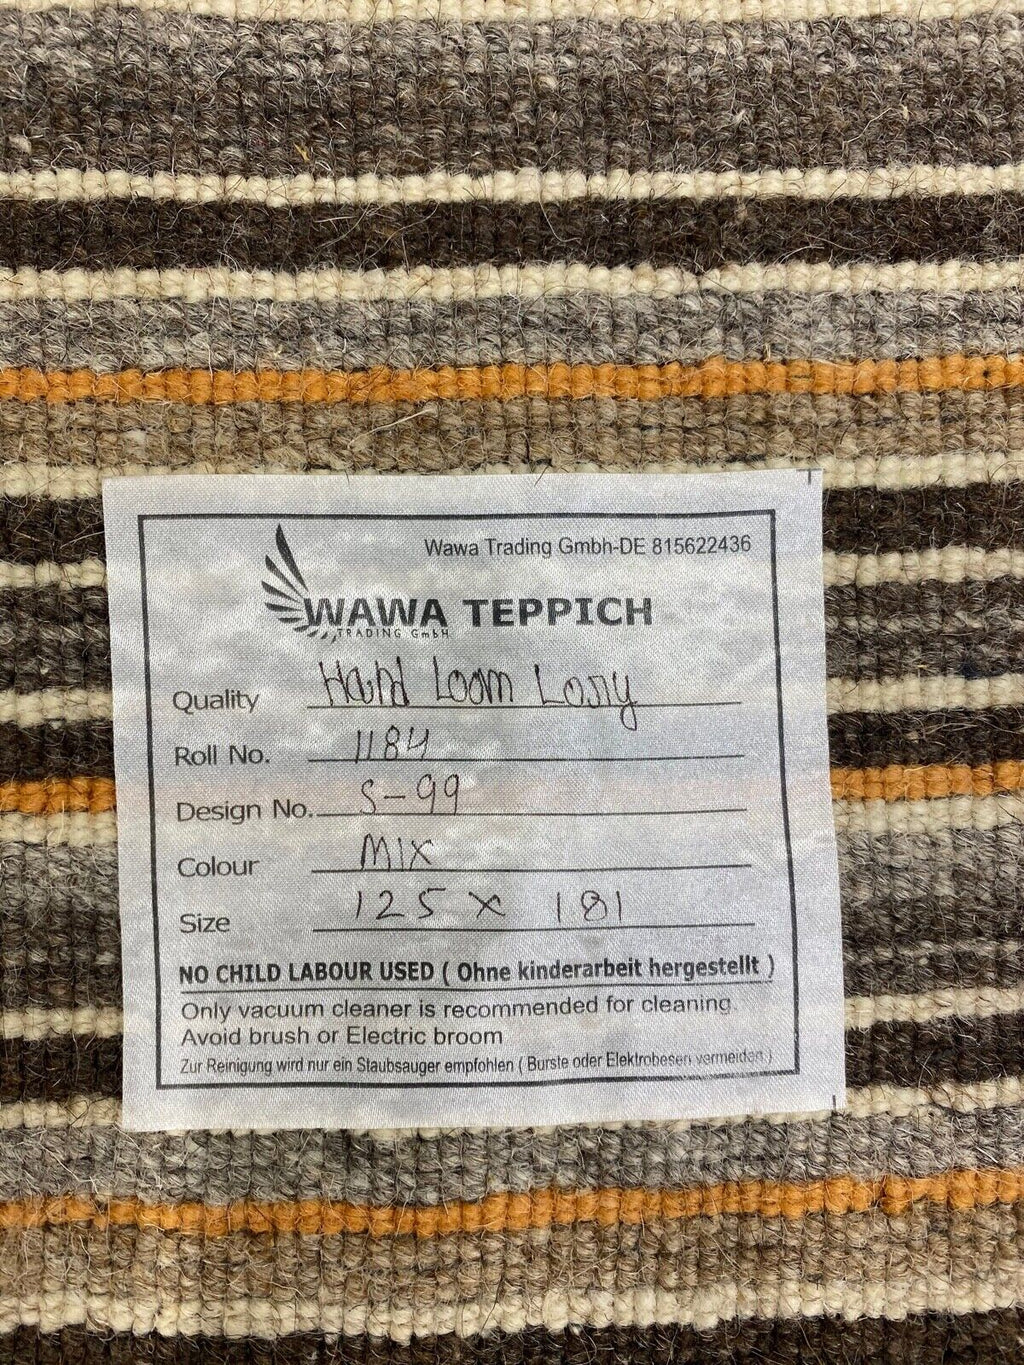 Wawa Trading Gmbh-DE 815622436
WAWA TEPPICH
TRADING GmbH
Quality Hand Loom Losiy
Roll No. 1184
Design No. S-99
Colour MIX
Size 125 x 181
NO CHILD LABOUR USED ( Ohne kinderarbeit hergestellt )
Only vacuum cleaner is recommended for cleaning.
Avoid brush or Electric broom
Zur Reinigung wird nur ein Staubsauger empfohlen ( Burste oder Elektrobesen vermeiden )